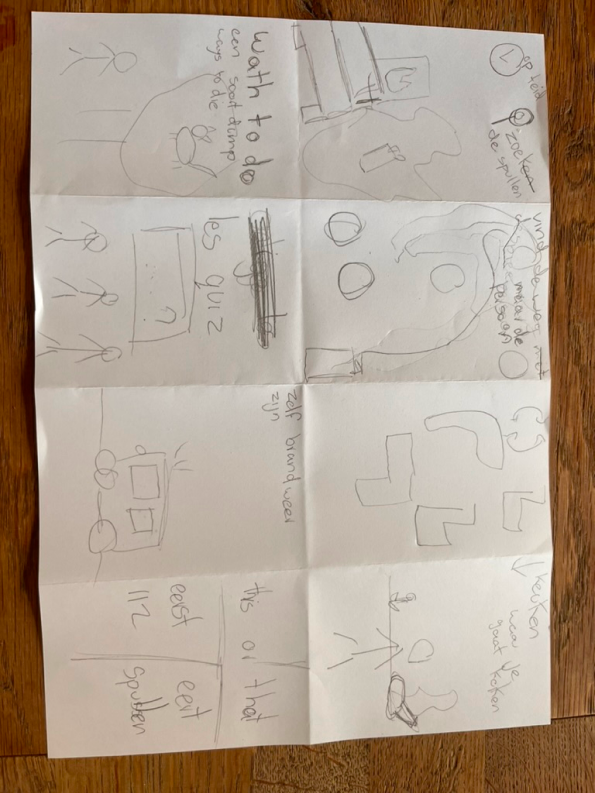 op tijd
zoeken
de spullen
vind de weg
naar de
persoon
keuken
waar je
gaat koken
wath to do
een soort dump
ways to die
les quiz
?
zelf brandweer
zijn
this or that
eerst
112
eert
spullen